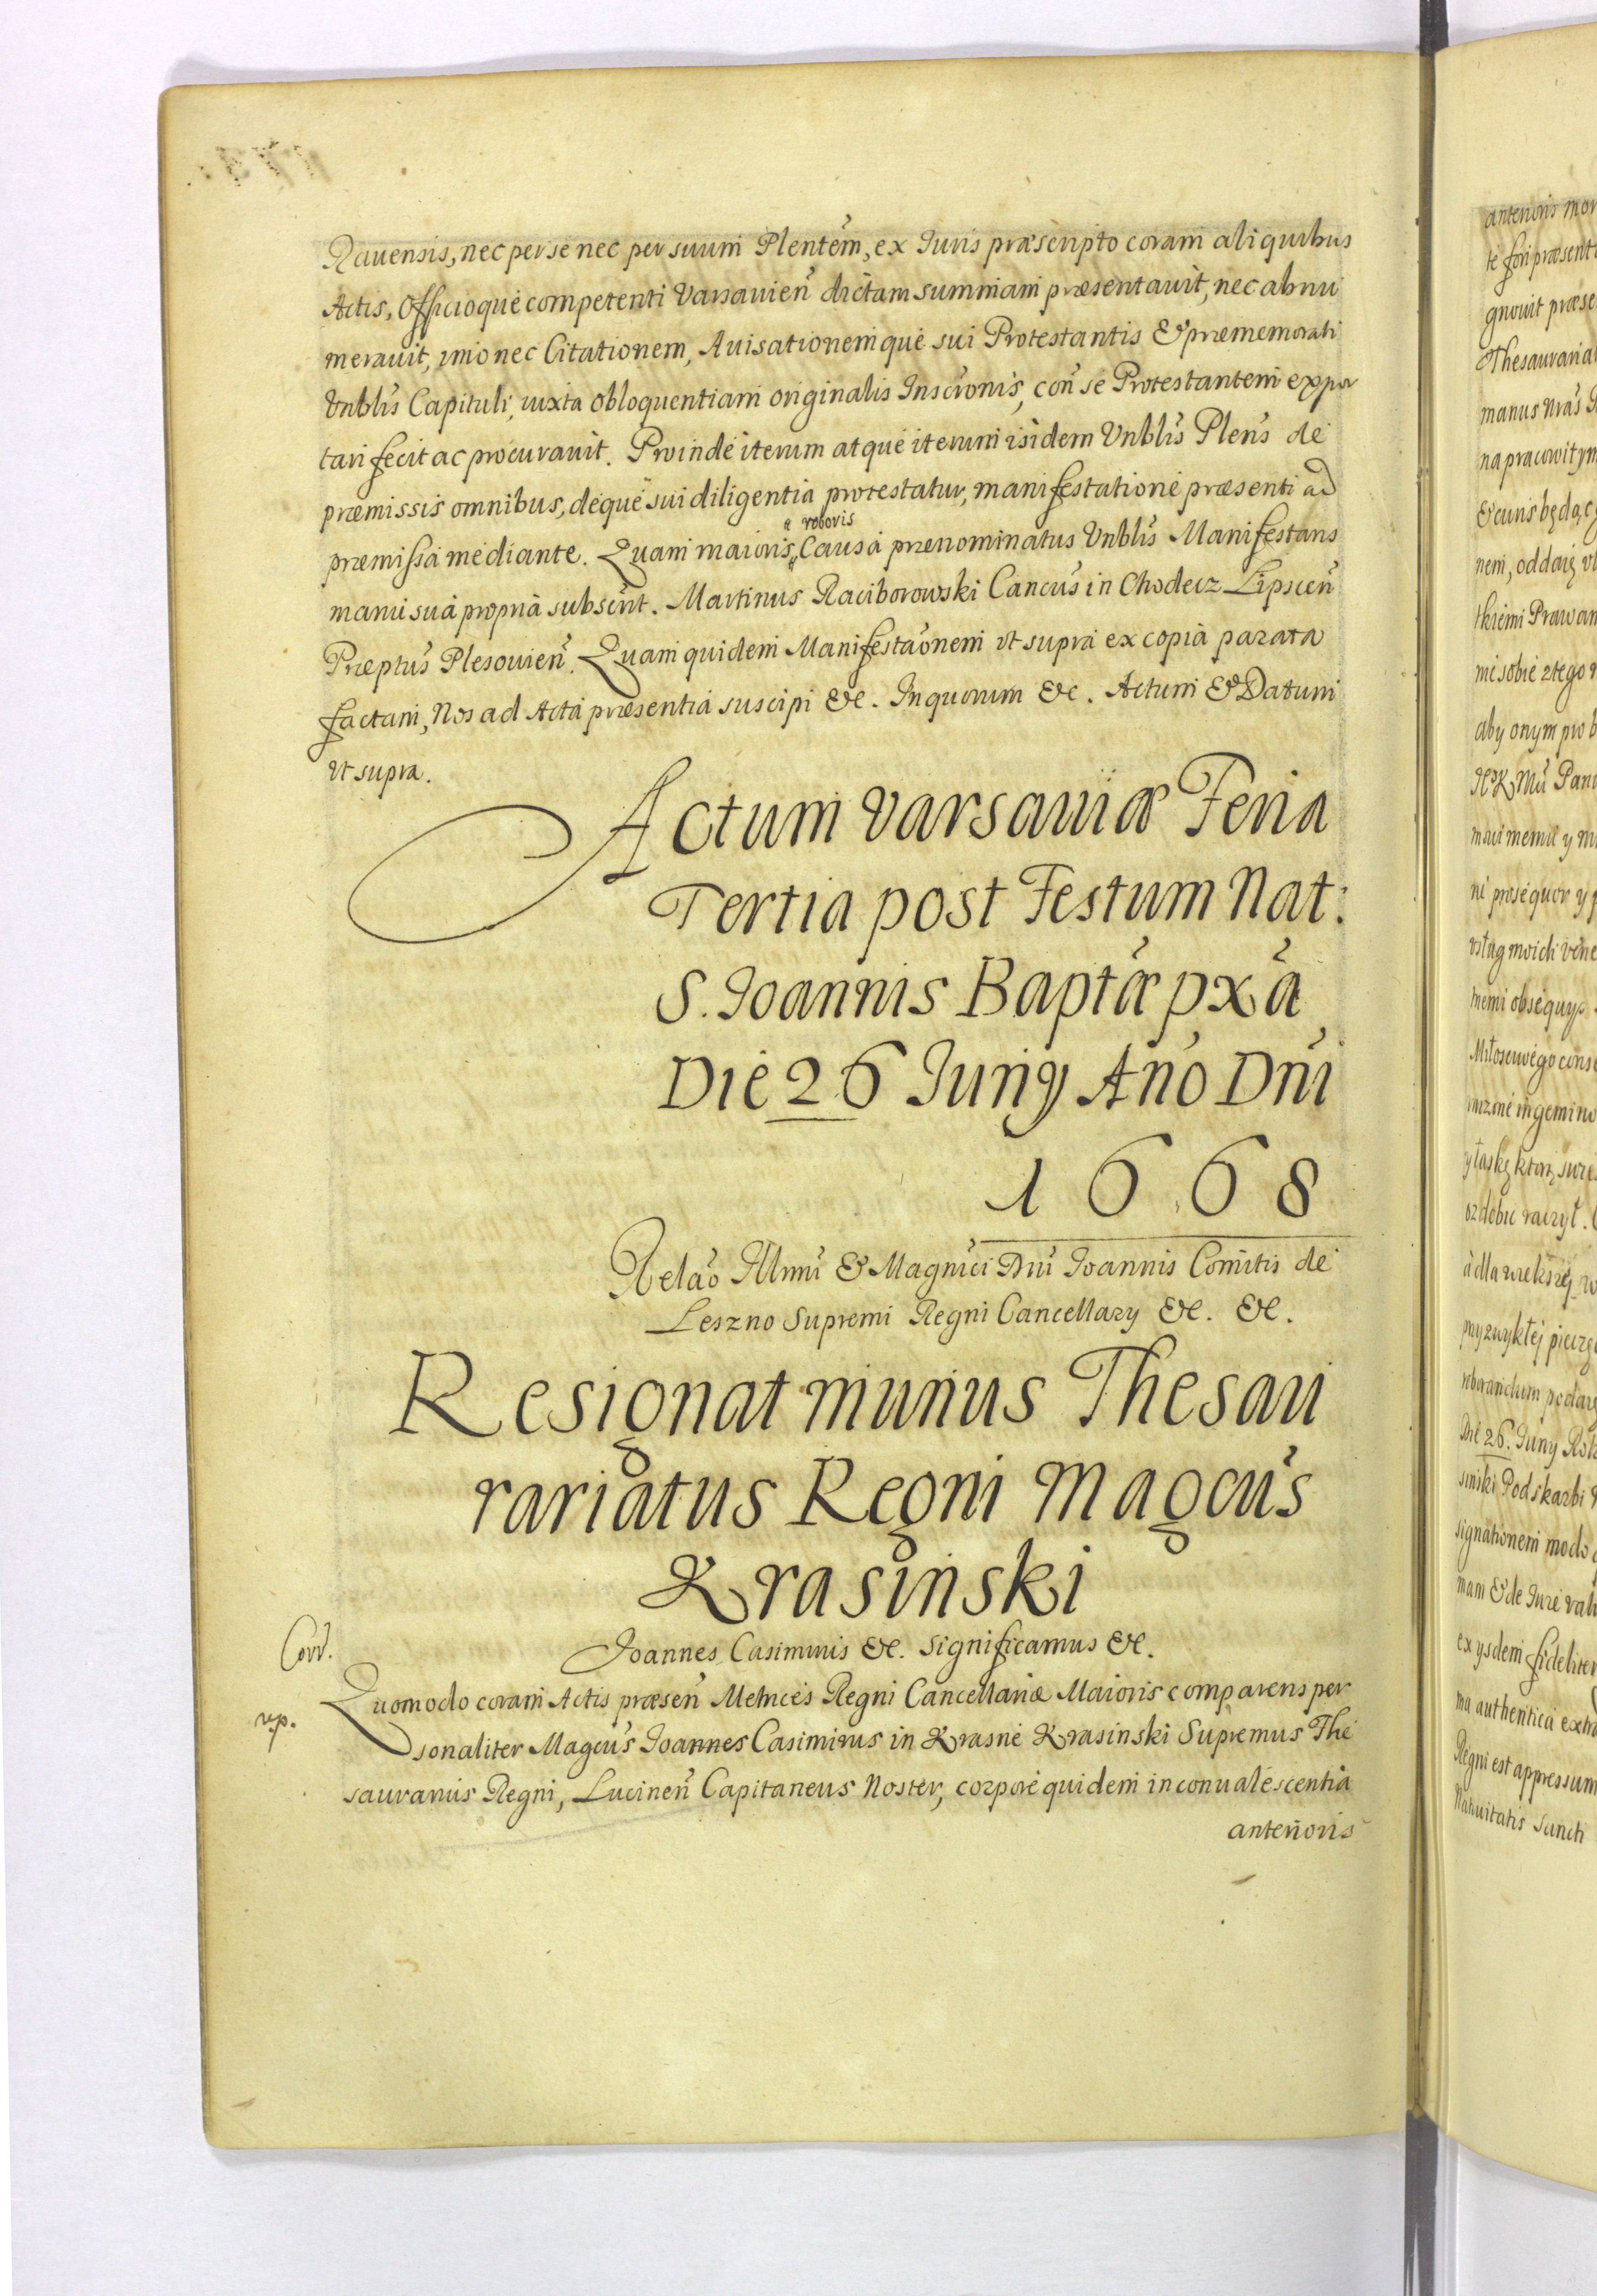 Rauensis, nec per se nec per suum Plentem̃, ex Iuris præscripto coram aliquibus
Actis, Officioque competenti Varsauien̄ dictam summam præsentauit, nec abnu
merauit, imo nec Citationem, Auisationemque sui Protestantis & præmemorati
Vnblis Capituli, iuxta obloquentiam originalis Inscronis, con̄ se Protestantem expor
tari fecit ac procurauit. Proinde iterum atque iterum isidem Vnblis Plens de
præmissis omnibus, deque sui diligentia protestatur, manifestatione præsenti ad
præmissa mediante. Quam maioris roboris Causa prænominatus Vnblis Manifestans
manu sua propria subscrit. Martinus Raciborowski Cancus in Chodecz Lipscen̄
Præptus Plesouien̄. Quam quidem Manifestaonem vt supra ex copia parata
factam, Nos ad Acta præsentia suscipi &c. In quorum &c. Actum & Datum
vt supra.
Actum Varsauiæ Feria
Tertia post Festum Nat:
S. Ioannis Baptæ pxa
Die 26 Iuny Año Dñi
1668
Relao Illmi & Magnici Dñi Ioannis Comitis de
Leszno Supremi Regni Cancellary &c. &c.
Resignat munus Thesau
rariatus Regni Magcus
Krasinski
Ioannes Casimirus &c. Significamus &c.
Corr.
Quomodo coram Actis præsen̄ Metrices Regni Cancellariæ Maioris comparens per
rep.
sonaliter Magcus Ioannes Casimirus in Krasne Krasinski Supremus The
saurarius Regni, Lucinen̄ Capitaneus Noster, corpore quidem in conualescentia
anterioris
anterioris mor
te fori præsenti
gnouit præse
Thesauraria
manus nras
na pracowitym
& curis będąc
nem, oddaię
tkiemi Prawam
mi sobie z tego
aby onym pro b
Pani
maiemu y m
ni prosequor y p
vsług moich
memi obsequys
Miłosciwego
ingemino
y łaskę ktorą
ozdobic raczył.
a dla większey
przy zwykłey pieczę
roborandum
Die 26. Iuny Rok
sinski Podskarbi
signationem modo
mam & de Iure val
ex ysdem fideliter
ma authentica extra
Regni est appressum
Natiuitatis Sancti